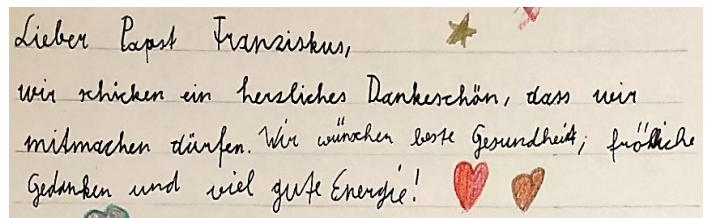 Lieber Papst Franziskus,
wir schicken ein herzliches Dankeschön, dass wir
mitmachen dürfen. Wir wünschen beste Gesundheit, fröhliche
Gedanken und viel gute Energie!